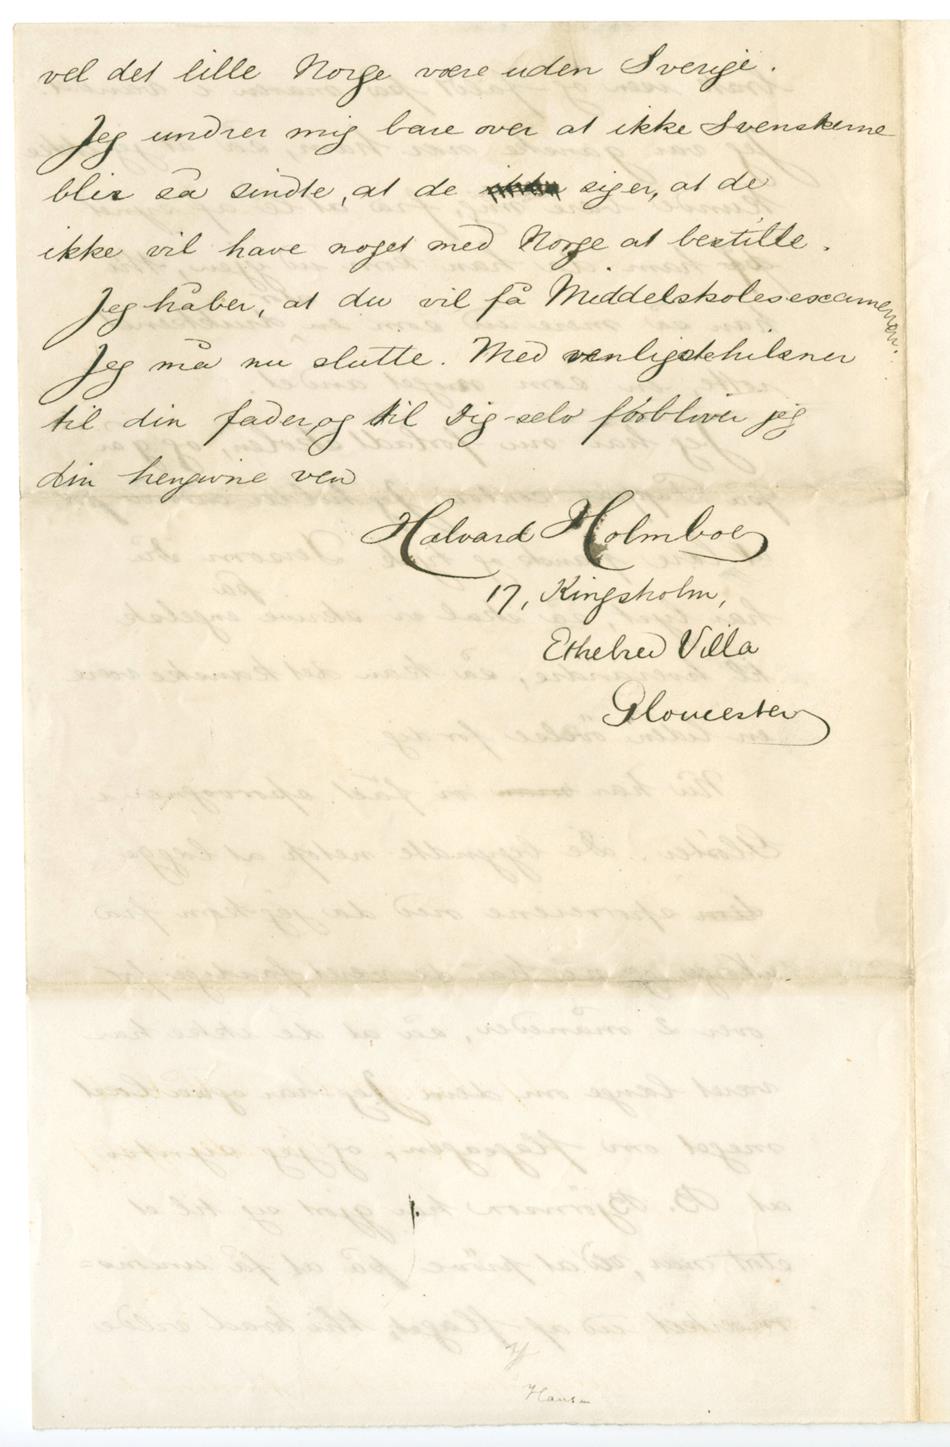 vel det lille Norge være uden Sverige.
Jeg undrer mig bare over at ikke Svenskerne
blir så sindte, at de siger, at de
ikke vil have noget med Norge at bestille.
Jeg håber, at du vil få Middelskolesexamenen.
Jeg må nu slutte. Med venligstehilsner
til din fader, og til Dig selv förbliver jeg
din hengivne ven
Halvard Holmboe
17, Kingsholm,
Ethelred Villa
Gloucester